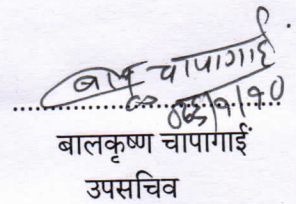 बालकृष्ण चापागाईं
०८३/१/१०
बालकृष्ण चापागाईं
उपसचिव